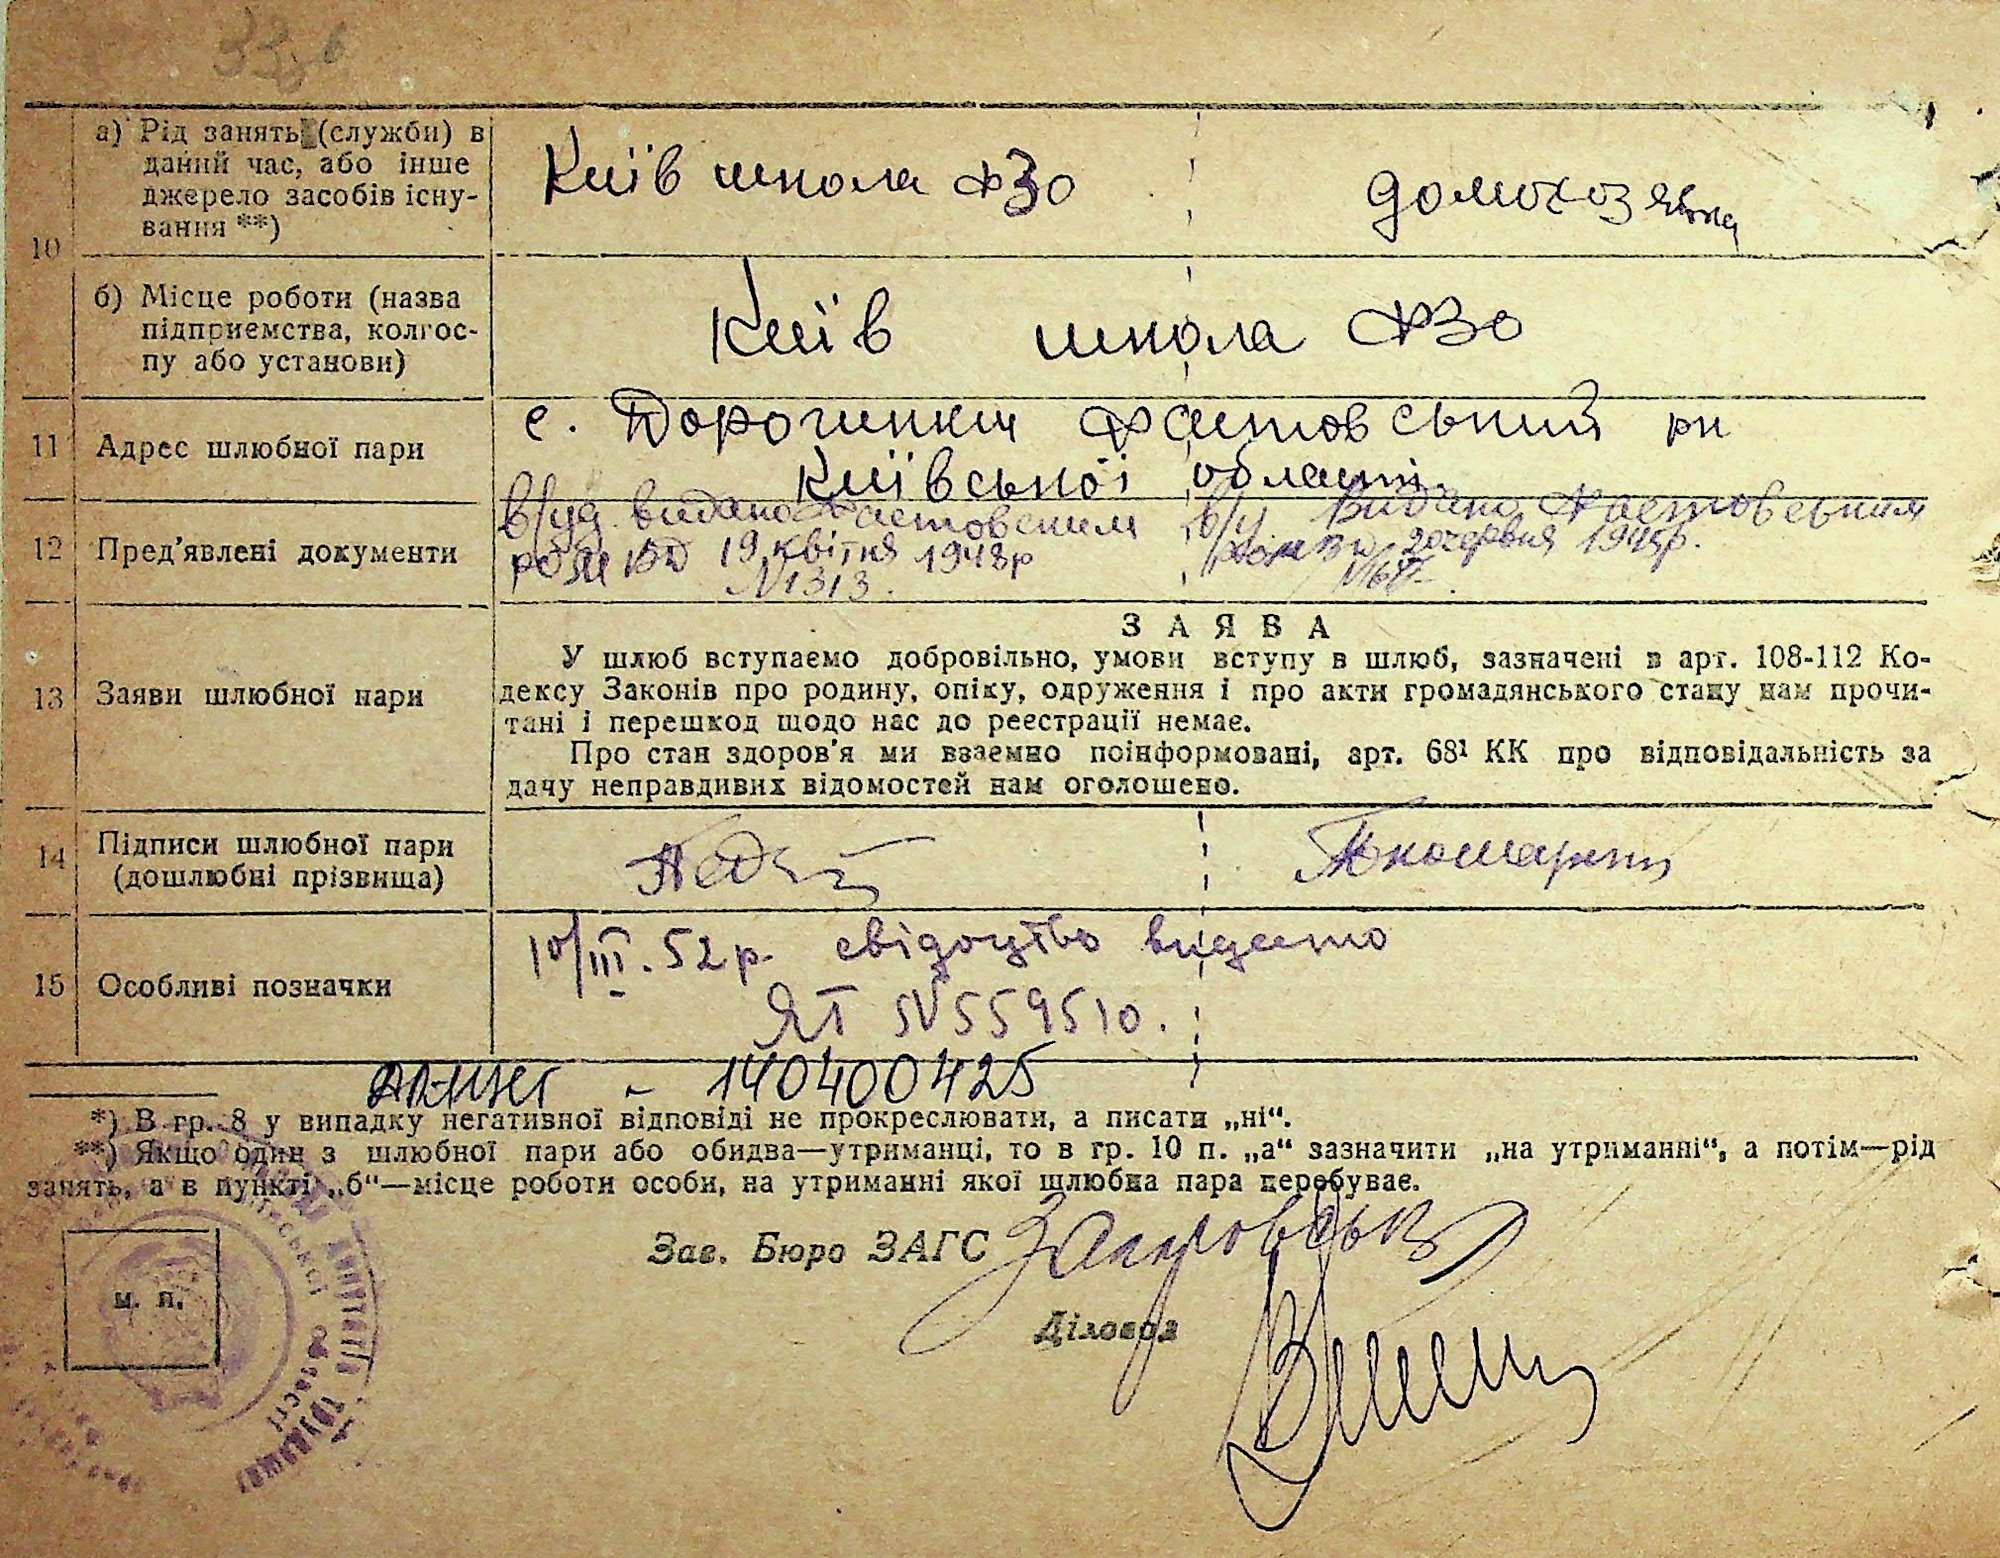 а) Рід занять (служби) в
даний час, або інше
джерело засобів існу-
вання **)
Київ школа ФЗО
домохозяйка
10
б) Місце роботи (назва
підприемства, колгос-
пу або установи)
Київ школа ФЗО
11
Адрес шлюбної пари
с. Дорогинкич Фастовський рн
Київської області.
12
Пред'явлені документи
в/уд. видано Фастовским
19 квітня 1948р
N1313.
в/у Видано Фастовським
20 червня 1948р.
13
Заяви шлюбної пари
ЗАЯВА
У шлюб вступаємо добровільно, умови вступу в шлюб, зазначені в арт. 108-112 Ко-
дексу Законів про родину, опіку, одруження і про акти громадянського стану нам прочи-
тані і перешкод щодо нас до реєстрації немає.
Про стан здоров'я ми взаємно поінформовані, арт. 68¹ КК про відповідальність за
дачу неправдивих відомостей нам оголошено.
14
Підписи шлюбної пари
(дошлюбні прізвища)
15
Особливі позначки
10/III. 52 р. свідоцтво видано
ЯТ N559510.
- 140400425
*) В гр. 8 у випадку негативної відповіді не прокреслювати, а писати „ні“.
**) Якщо один з шлюбної пари або обидва—утриманці, то в гр. 10 п. „а“ зазначити „на утриманні“, а потім—рід
занять, а в пункті „б“—місце роботи особи, на утриманні якої шлюбна пара перебуває.
Зав. Бюро ЗАГС
Діловод
м. п.